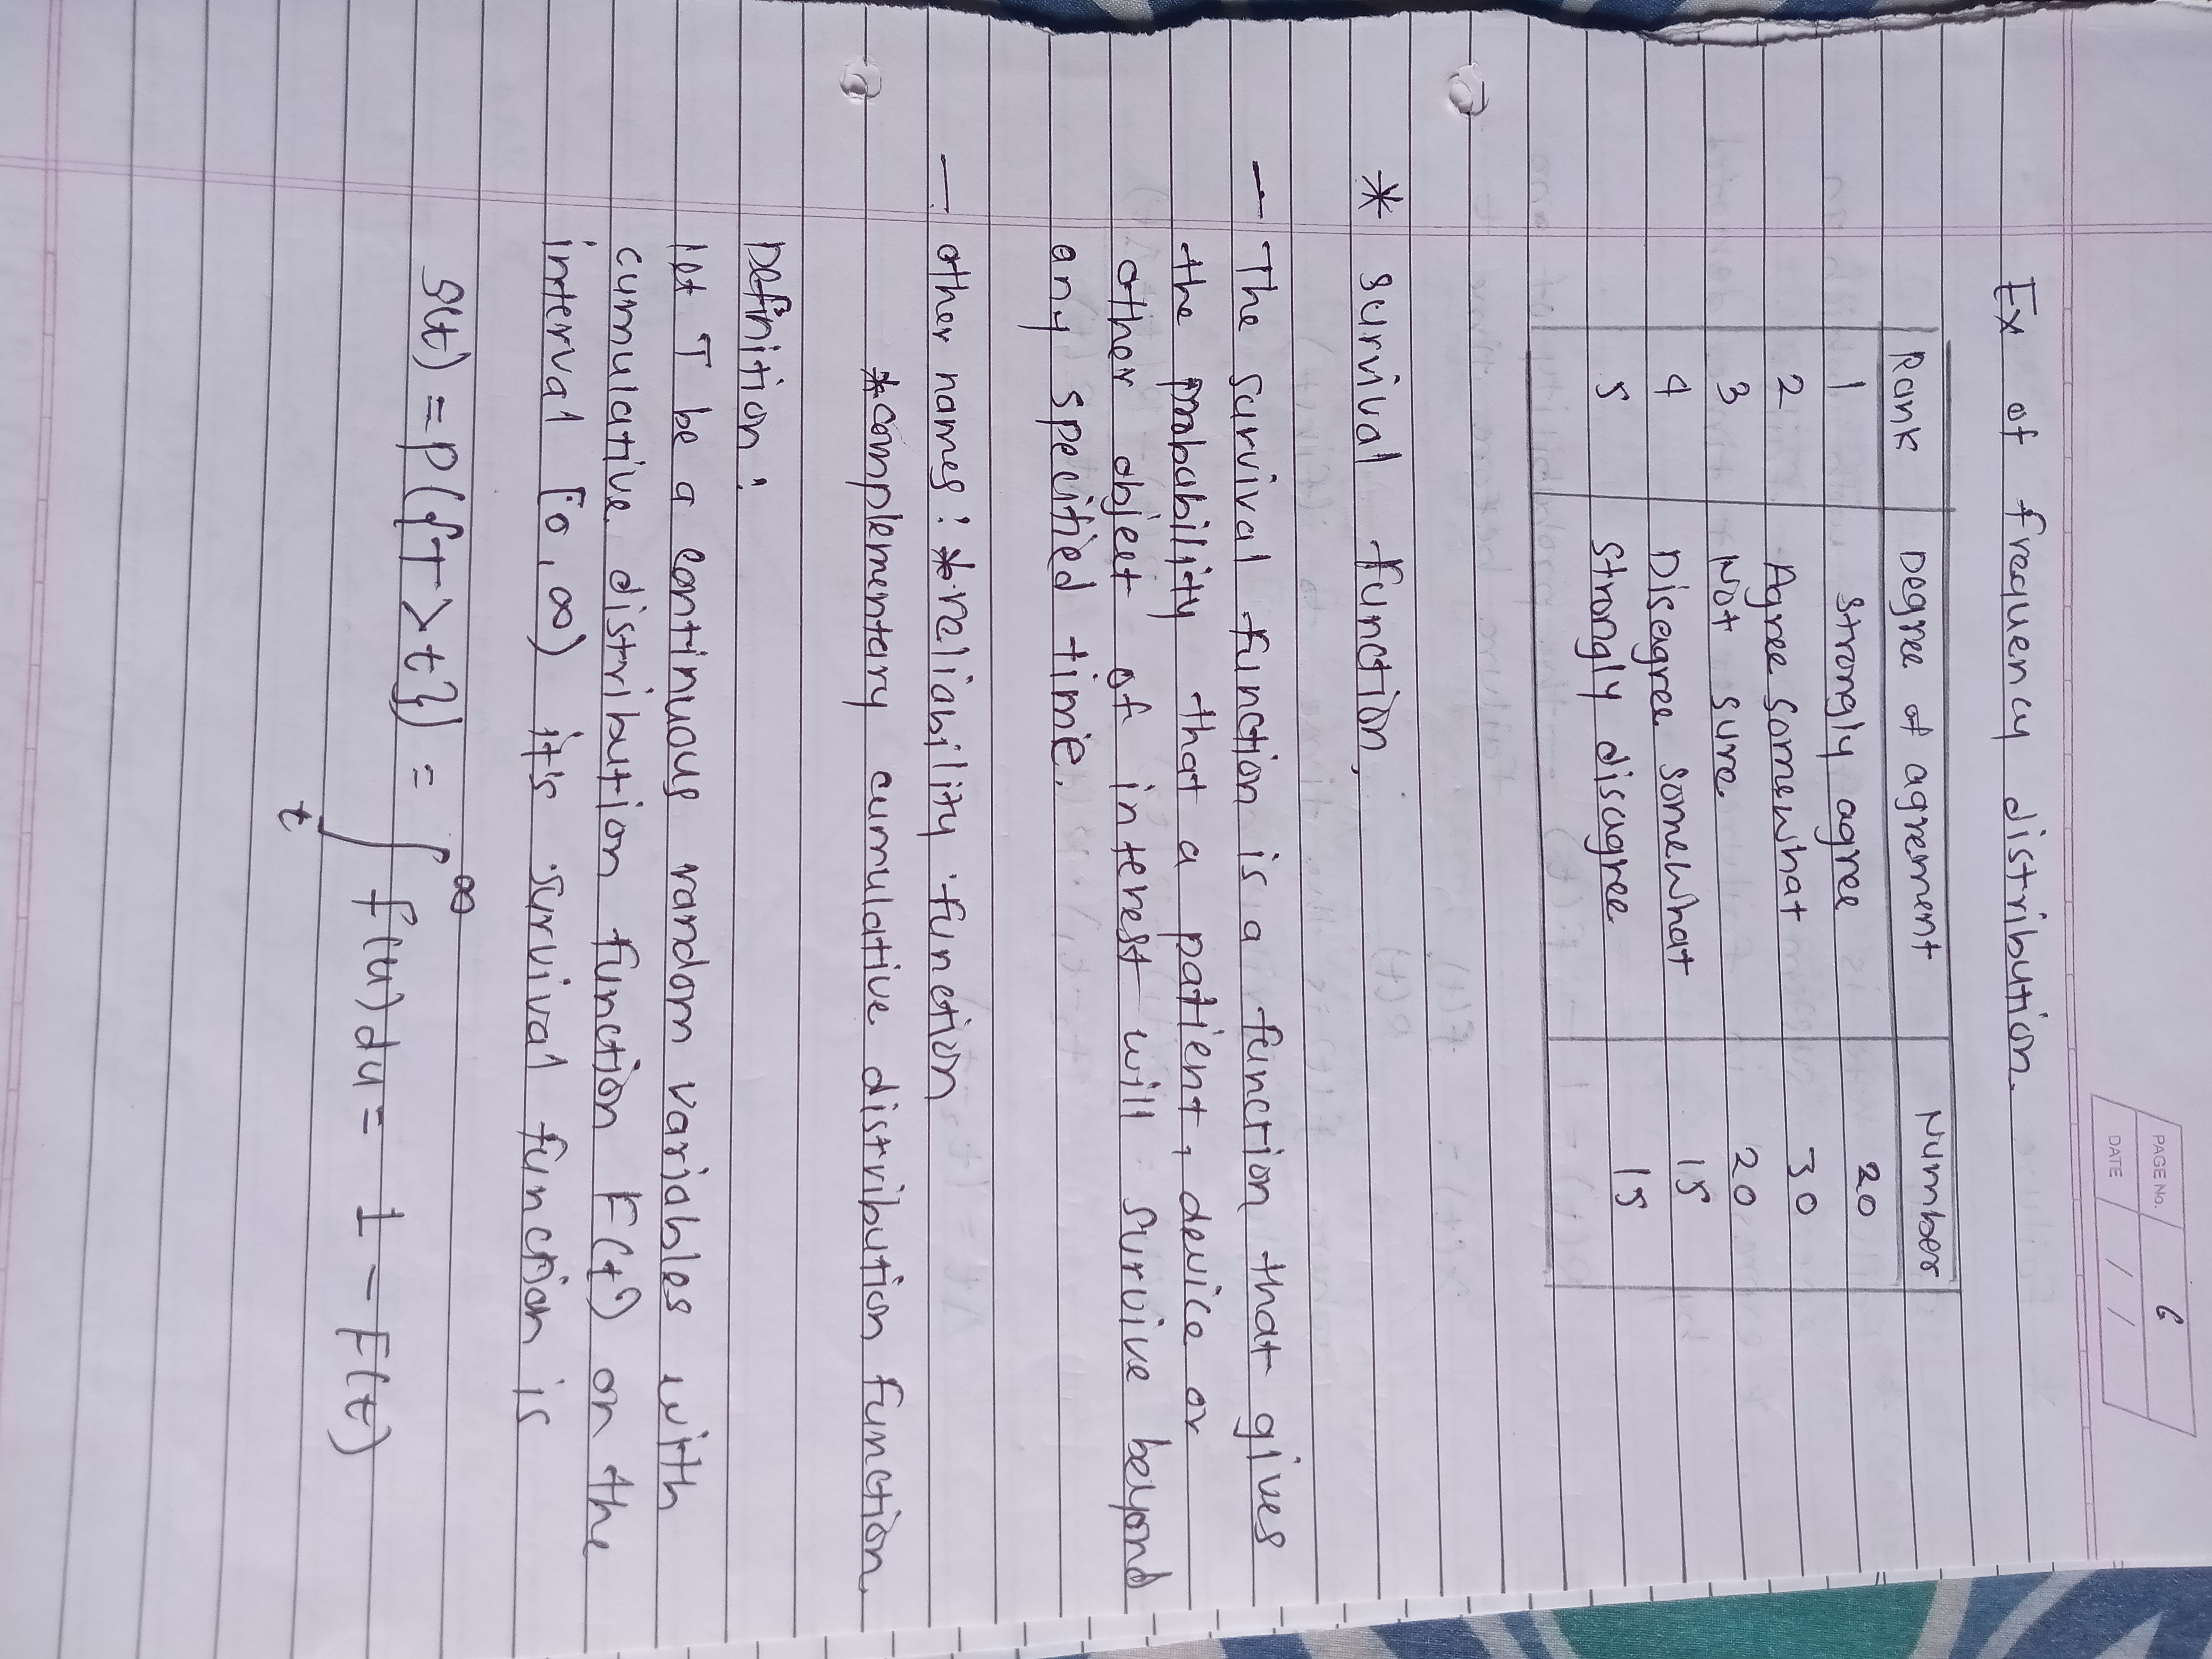 PAGE No. 6
DATE / /
Ex of frequency distribution.
Rank Degree of agrement Number
1 Strongly agree 20
2 Agree somewhat 30
3 Not sure 20
4 Disagree somewhat 15
5 Strongly disagree 15
* survival function,
— The survival function is a function that gives
the probability that a patient, device or
other object of interest will survive beyond
any specified time.
— other names : * reliability function
* complementary cumulative distribution function.
Definition :
let T be a continuous random variables with
cumulative distribution function F(t) on the
interval [0, ∞) it's survival function is
S(t) = P({T > t}) = ∫_t^∞ f(u) du = 1 - F(t)